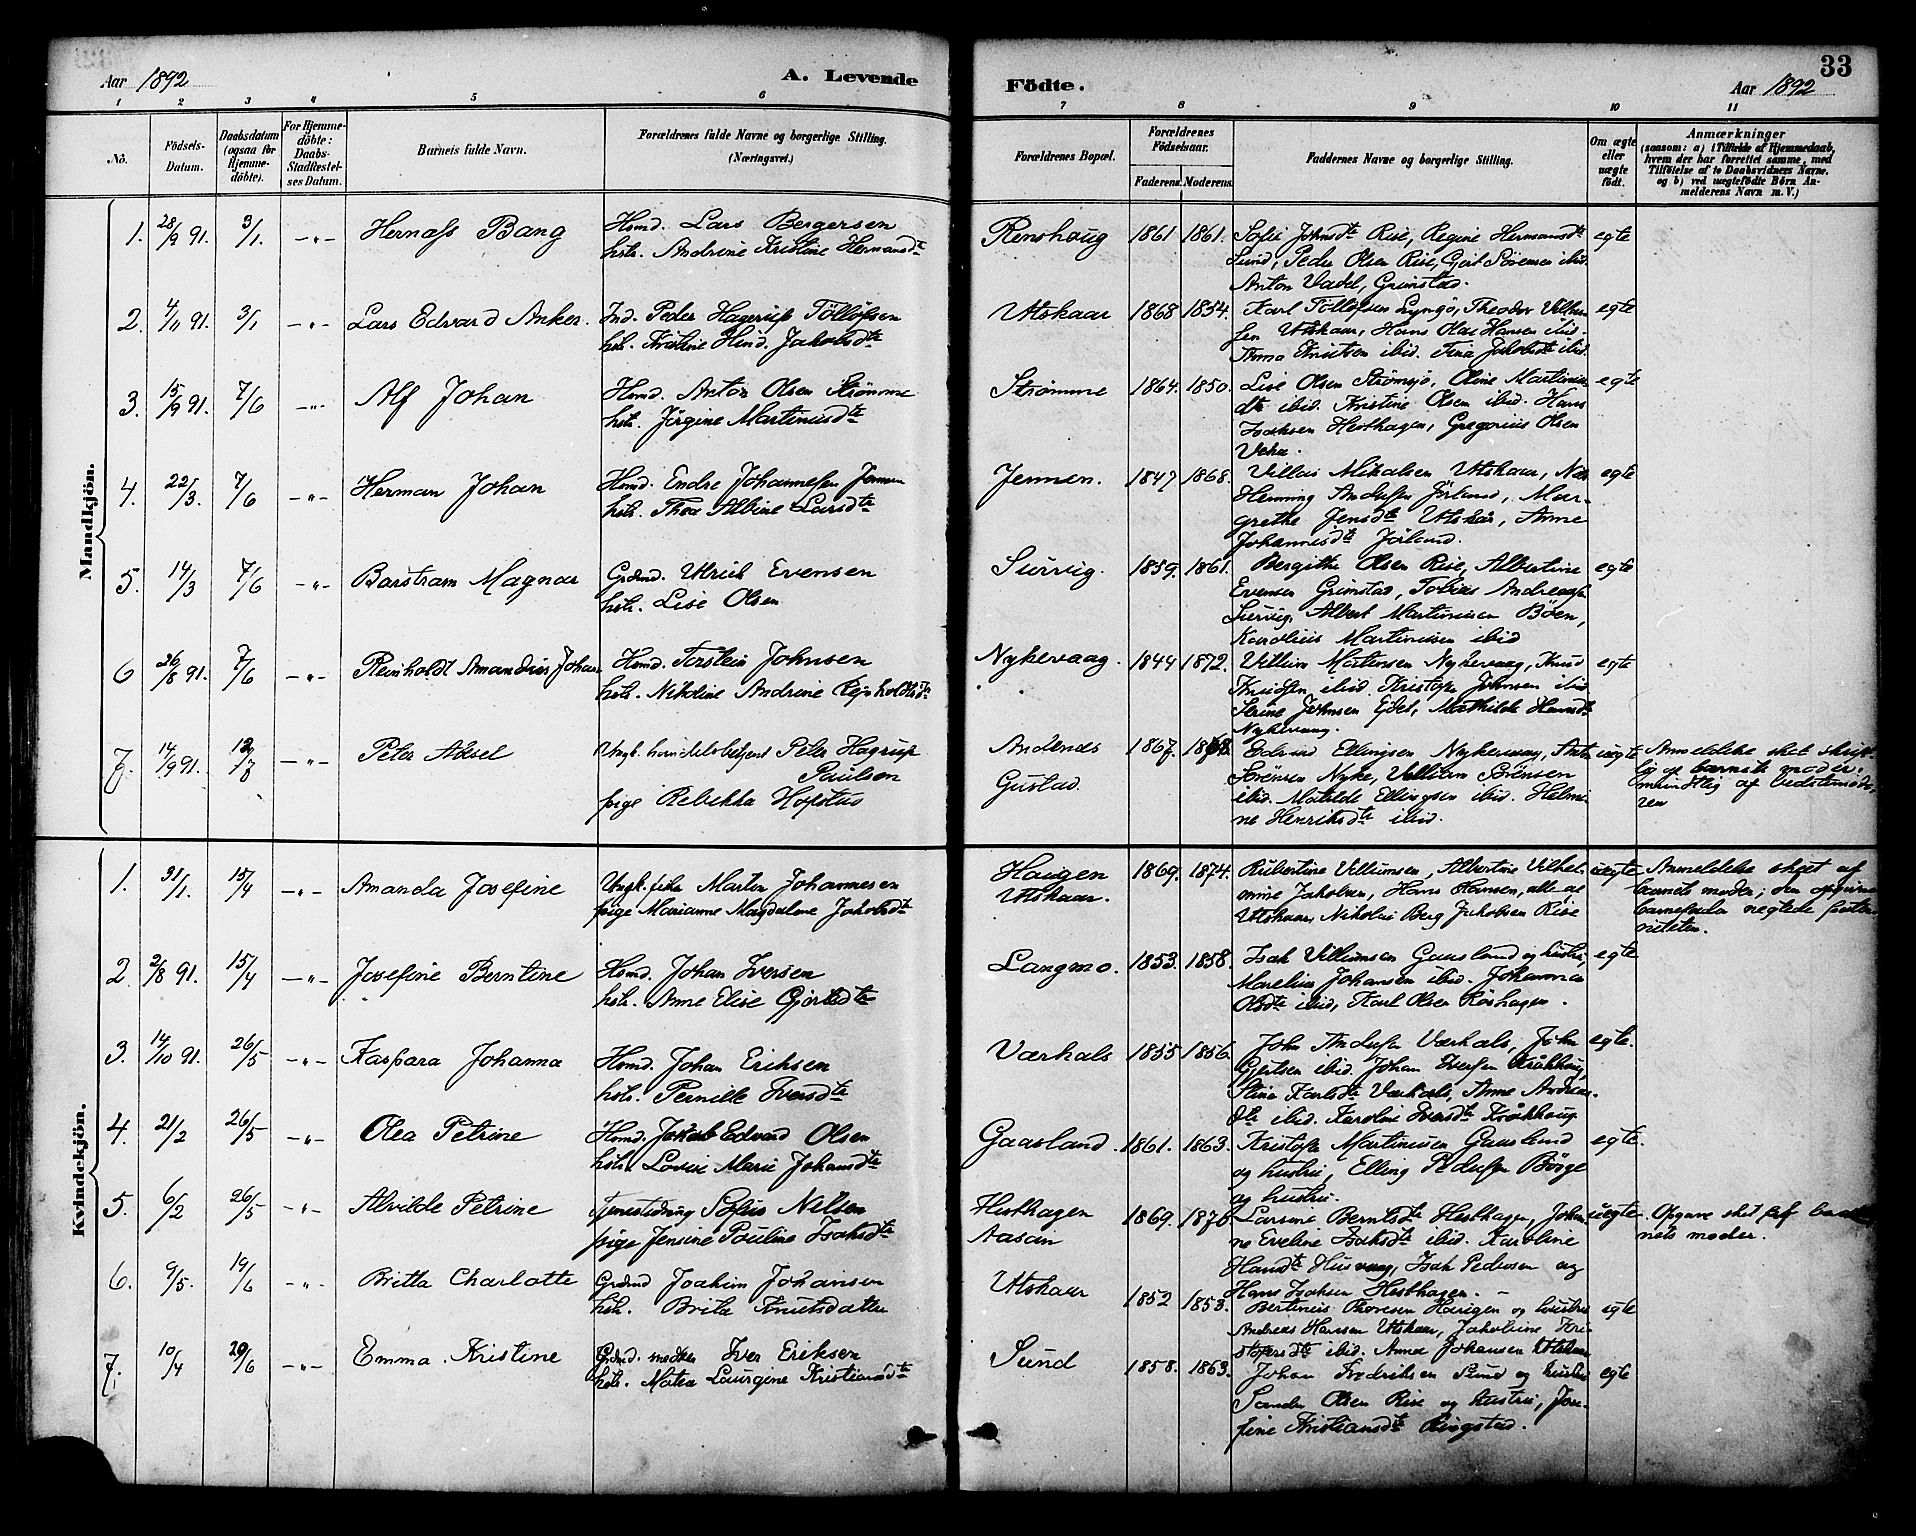 Aar 1892
A. Levende
Födte.
Aar 1892
33
1 2 3 4 5 6 7 8 9 10 11
No.
Födsels-
Datum.
Daabsdatum
(ogsaa for
Hjemme-
döbte).
For Hjemme-
döbte:
Daabs-
Stadfæstel-
ses Datum.
Barnets fulde Navn.
Forældrenes fulde Navne og borgerlige Stilling.
(Næringsvei.)
Forældrenes Bopæl.
Forældrenes
Födselsaar.
Faderens. Moderens.
Faddernes Navne og borgerlige Stilling.
Om ægte
eller
uægte
födt.
Anmærkninger
(saasom: a) i Tilfælde af Hjemmedaab,
hvem der har forrettet samme, med
Tilföielse af to Daabsvidners Navne.
og b) ved uægtefödte Börn An-
melderens Navn m. V.)
Mandkjön.
1. 28/9 91. 3/1. -"- Hernass Bang
Hsmd. Lars Bergersen
hstr. Andrine Kristine Hermansdtr
Renshaug 1861 1861.
Sofie Johnsdtr Rise, Regine Hermansdtr
Sund, Peder Olsen Rise, Gjert Sörensen ibid.
Anton Vadel, Grimstad.
egte
2. 4/11 91. 3/1 -"- Lars Edvard Anker.
Ind. Peder Hagerup Töllöfsen
hstr. Karoline Hind. Jakobsdtr
Utskaar 1868 1854.
Karl Töllöfsen Lyngö, Theodor Villum-
sen Utskaar, Hans Olai Hansen ibid.
Anna Knutsen ibid. Fina Jakobsdtr ibid.
egte
3. 15/9 91. 7/6 -"- Alf Johan
Hsmd. Anton Olsen Strömme
hstr. Jörgine Martinusdtr
Strömme 1864. 1850.
Lise Olsen Strömsjö, Oline Martinus-
dtr ibid. Kristine Olsen ibid. Hans
Isaksen Hesthagen, Gregorius Olsen
egte
4. 22/3. 7/6 -"- Herman Johan
Hsmd. Endre Johannessen Jennen
hstr. Thea Albine Larsdtr
Jennen. 1847 1868.
Villas Mikalsen Utskaar, Nils
Henning Andersen Jörlund, Mar-
grethe Jensdtr Utskår, Anne
Johannesdtr Jörlund.
egte
5. 14/3 7/6 -"- Barstram Magnar
Grdmd. Ulrich Evensen
hstr. Lise Olsen
Survig. 1859. 1861.
Bergithe Olsen Rise, Albertine
Evensen Grimstad, Tobias Andreassen
Survig, Albert Martinusen Böen,
Karolius Martinusen ibid
egte
6 26/8 91. 7/6 -"- Reinholdt Amandus Johan
Hsmd. Torstein Johnsen
hstr. Nikoline Andrine Reinholdtsdtr
Nykevaag. 1844 1872.
Villum Martinsen Nykevaag, Knud
Knudsen ibid. Kristofer Johnsen ibid
Serine Johnsen Ejdet, Mathilde Hansdtr
Nykevaag.
egte
7. 14/9 91. -"- Peter Aksel
Ungk. handelsbetjent Peter Hagrup
Paulsen
pige Rebekka Hofstus
Andenes
Gustad.
1867. 1868.
Edvard Ellingsen Nykevaag, Anton
Sörensen Nyke, Villiam Sörensen
ibid. Matilde Ellingsen ibid. Helmi-
ne Henriksdtr ibid.
uegte
Anmeldelse sket skrift-
lig af barnets moder;
mundtlig af bedstemode-
ren
Kvindekjön.
1. 31/1. 15/4 -"- Amanda Josefine
Ungk. fisker Martin Johannesen
pige Marianne Magdalene Jakobsdtr
Haugen
Utskaar.
1869. 1874.
Rubertine Villumsen, Albertine Vilhel-
mine Jakobsen, Hans Hansen, alle af
Utskaar, Nikolai Berg Jakobsen Rise
uegte
Anmeldelse skeet af
barnets moder; den opgivne
barnefader negtede pater-
niteten.
2. 2/8 91. 15/4 -"- Josefine Berntine
Hsmd. Johan Iversen
hstr. Anne Elise Gjertsdtr
Langmo. 1853. 1858.
Isak Villumsen Gaasland og hustru,
Marelius Johansen ibid. Johanna
Olsdtr ibid, Karl Olsen Röshagen.
egte
3. 14/10 91. 26/5 -"- Kaspara Johanna
Hsmd. Johan Eriksen
hstr. Pernille Iversdtr
Værhals 1855 1856.
John Andersen Værhals, John
Gjertsen ibid. Johan Iversen Kråkhaug,
Stina Karlsdtr Værhals, Anne Andreas-
dtr ibid. Karoline Iversdtr Kråkhaug
egte.
4. 21/2 26/5 -"- Olea Petrine
Hsmd. Jakob Edvard Olsen
hstr. Lovise Marie Johansdtr
Gaasland. 1861. 1863.
Kristofer Martinusen Gaasland
og hustru, Elling Pedersen Börge
og hustru.
egte.
5. 6/2 26/5 -"- Alvilde Petrine
Tjenestedreng Sofus Nelsen
pige Jensine Pauline Isaksdtr
Hesthagen
Aasan
1869. 1870
Larsine Berntsdtr Hesthagen, Johan-
ne Eveline Isaksdtr ibid. Karoline
Hansdtr Husvaag, Isak Pedersen og
Hans Isaksen Hesthagen.
uegte.
Opgave sket af bar-
nets moder.
6. 9/5. 19/6 -"- Britta Charlotte
Grdmd Joakim Johansen
hstr. Brita Knutsdatter
Utskaar 1852 1853.
Bertinius Thoresen Haugen og hustru
Andreas Hansen Utskaar, Jakobine Kri-
stofersdtr ibid. Anna Johansen Utskaar
egte
7. 10/4 29/6 -"- Emma Kristine
Grdmd. snedker Iver Eriksen
hstr. Matea Laurgine Kristiansdtr
Sund 1858. 1863.
Johan Fredriksen Sund og hustru
Sander Olsen Rise og hustru, Jose-
fine Kristiansdtr Ringstad.
egte